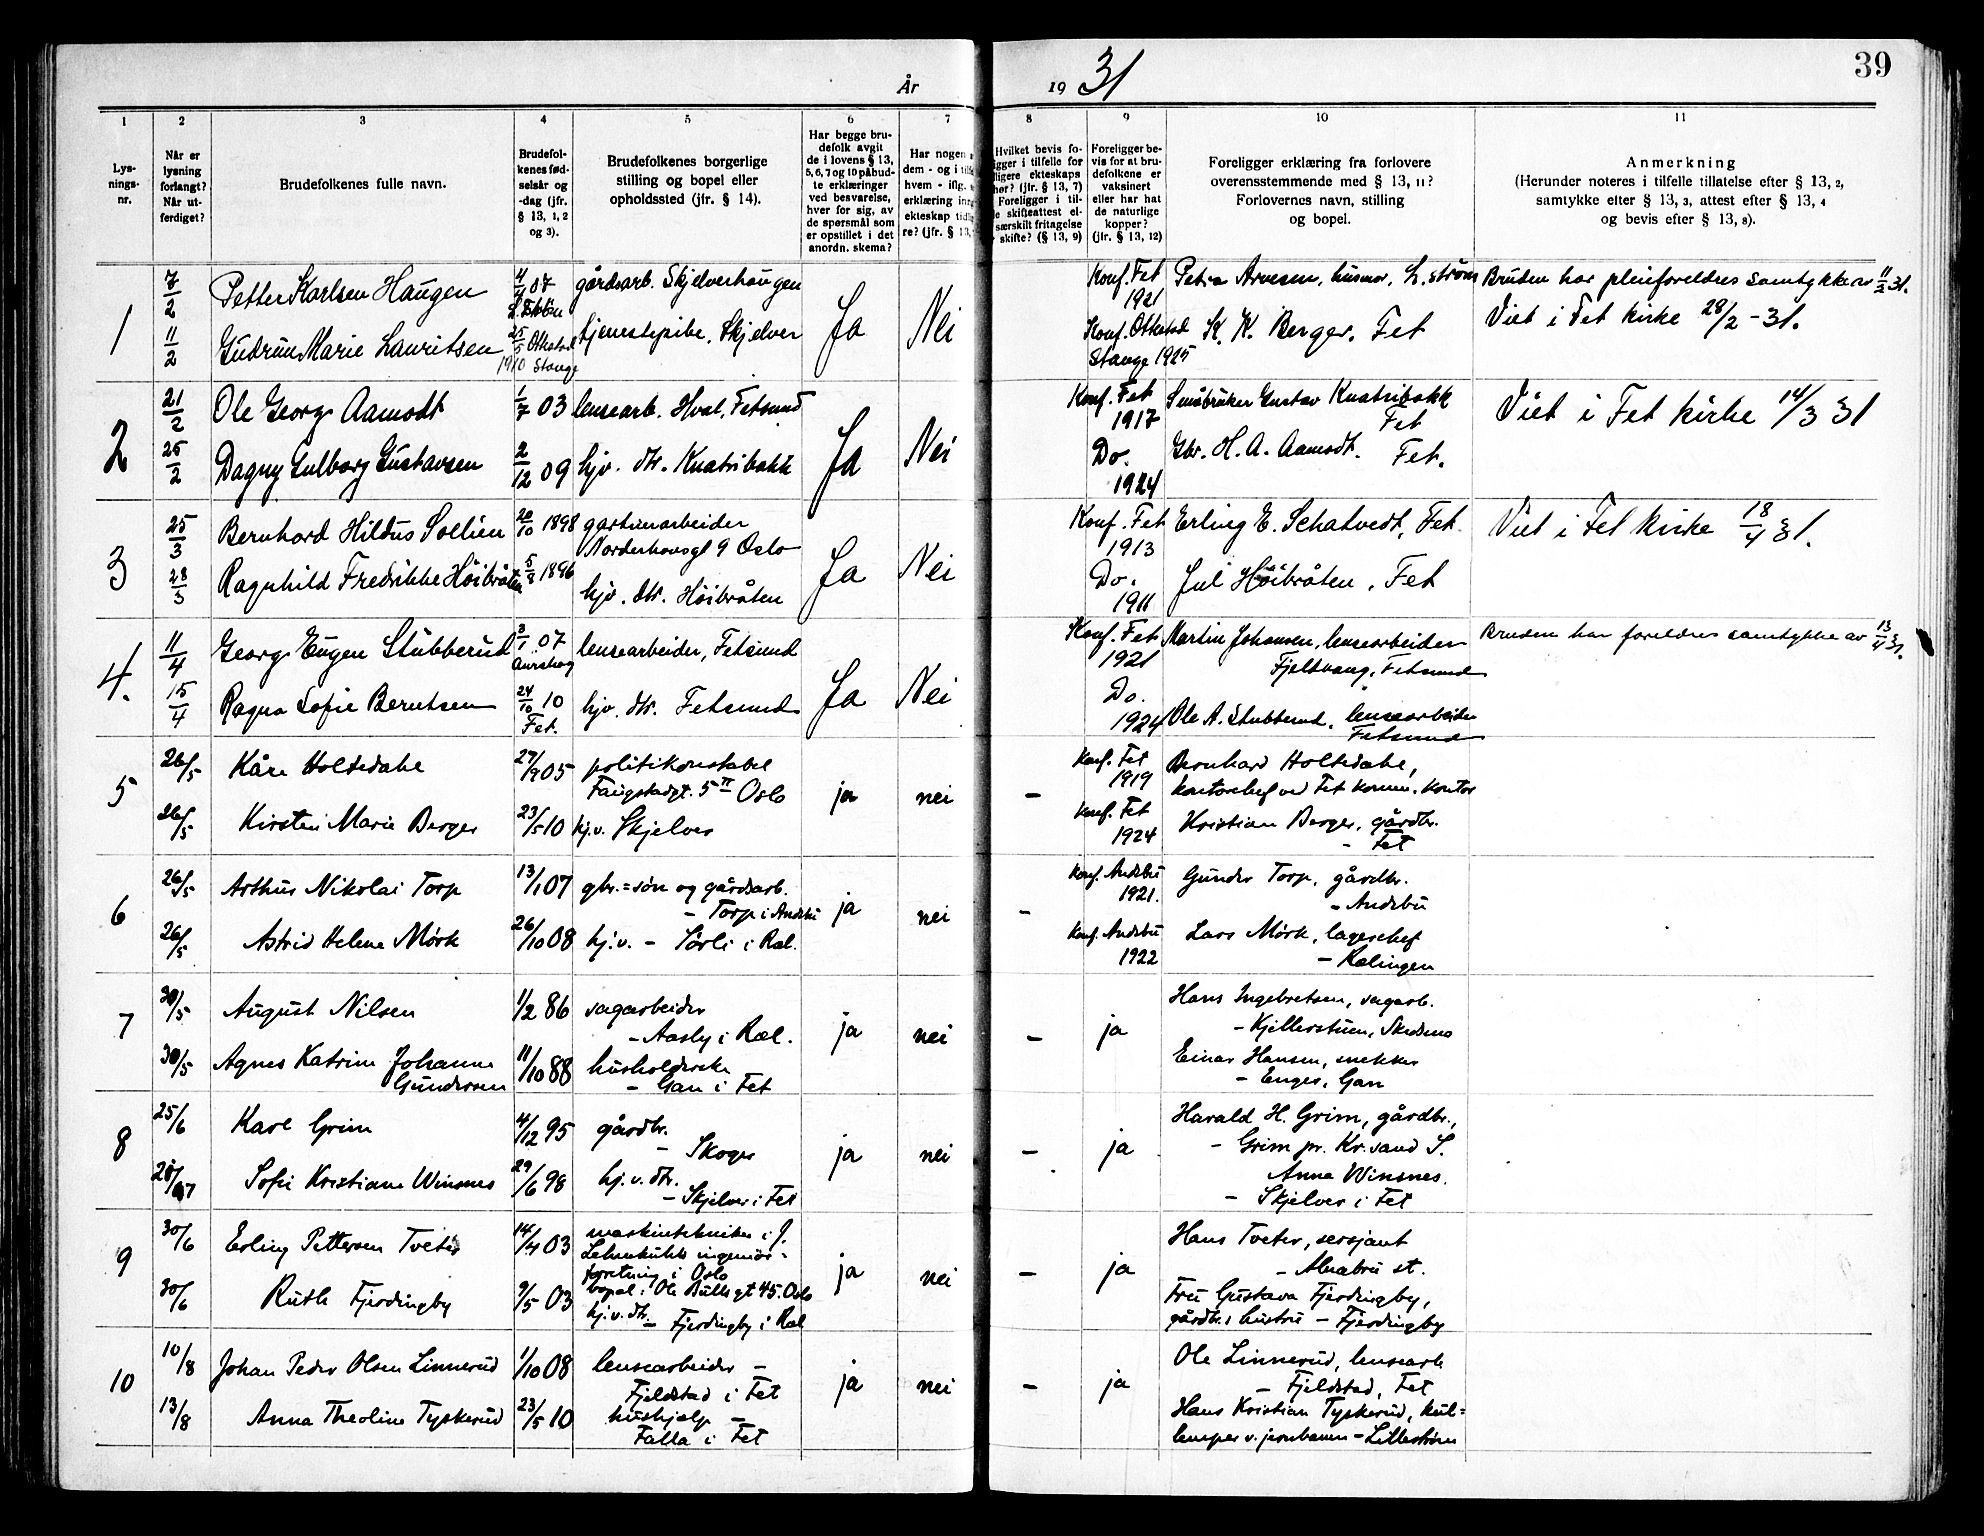 39
År 19 31
1 2 3 4 5 6 7 8 9 10 11
Lys-
nings-
nr.
Når er
lysning
forlangt?
Når ut-
ferdiget?
Brudefolkenes fulle navn.
Brudefol-
kenes fød-
selsår og
-dag (jfr.
§ 13, 1, 2
og 3).
Brudefolkenes borgerlige
stilling og bopel eller
opholdssted (jfr. § 14).
Har begge bru-
defolk avgit
de i lovens § 13,
5, 6, 7 og 10 påbud-
te erklæringer
ved besvarelse,
hver for sig, av
de spørsmål som
er opstillet i det
anordn. skema?
Har nogen
dem - og i
hvem - iflg.
erklæring
ekteskap
re? (jfr. § 13,
Hvilket bevis fo-
ligger i tilfelle for
ligere ekteskaps
hør? (jfr. § 13, 7)
Foreligger i til-
skifteattest el-
særskilt fritagelse
skifte? (§ 13, 9)
Foreligger be-
vis for at bru-
defolkene er
vaksinert
eller har hat
de naturlige
kopper?
(jfr. § 13, 12)
Foreligger erklæring fra forlovere
overensstemmende med § 13, 11?
Forlovernes navn, stilling
og bopel.
Anmerkning
(Herunder noteres i tilfelle tillatelse efter § 13, 2,
samtykke efter § 13, 3, attest efter § 13, 4
og bevis efter § 13, 8).
1
7/2 Petter Karlsen Haugen 4/4 07 gårdsarb. Skjelverhaugen Ja Nei Konf. Fet 1921 Petra Arvesen, husmor, L.strøm Bruden har pleieforeldres samtykke av 11/2 31.
11/2 Gudrun Marie Lauritsen 25/5 Ottestad 1910 Stange tjenestepike, Skjelver Konf. Ottestad Stange 1925 K. K. Berger, Fet Viet i Fet kirke 28/2 - 31.
2
21/2 Ole Georg Aamodt 1/7 03 lensearb. Hval, Fetsund Ja Nei Konf. Fet 1917 Småbruker Gustav Knatribakk Fet Viet i Fet kirke 14/3 31
25/2 Dagny Gulborg Gustavsen 2/12 09 hjv. dtr. Knatribakk Do. 1924 Gbr. H. A. Aamodt. Fet.
3
25/3 Bernhard Hildus Sollien 20/10 1898 gartnerarbeider Norderhovsgt 9 Oslo Ja Nei Konf. Fet 1913 Erling E. Schatvedt, Fet. Viet i Fet kirke 18/4 31.
28/3 Ragnhild Fredrikke Höibråten 5/8 1896 hjv. dtr. Höibråten Do. 1911 Jul Höibråten, Fet
4.
11/4 Georg Eugen Stubberud 3/1 07 Aurskog lensearbeider, Fetsund Ja Nei Konf. Fet 1921 Martin Johansen, lensearbeider Fjeltvang, Fetsund Bruden har foreldres samtykke av 13/4 31.
15/4 Ragna Sofie Berntsen 24/10 10 Fet. hjv. dtr. Fetsund Do. 1924 Ole A. Stubberud, lensearbeider Fetsund
5
26/5 Kåre Holtedahl 27/9 05 politikonstabel Faugstadgt. 5 II Oslo ja nei - Konf. Fet 1919 Bernhard Holtedahl, kontorchef ved Fet komm. kontor
26/5 Kirsten Marie Berger 23/5 10 hj.v. Skjelver Konf. Fet 1924 Kristian Berger, gårdbr. - Fet
6
26/5 Arthur Nikolai Torp 13/1 07 gbr.=søn og gårdsarb. - Torp i Andebu ja nei - Konf. Andebu 1921. Gunder Torp, gårdbr. - Andebu
26/5 Astrid Helene Mørk 26/10 08 hj.v. - Sørli i Ræl. Konf. Andebu 1922 Lars Mørk, lagerchef - Rælingen
7
30/5 August Nilsen 1/2 86 sagarbeider - Aasly i Ræl. ja nei - ja Hans Ingebretsen, sagarb. - Kjellerstuen, Skedsmo
30/5 Agnes Katrine Johanne Gundersen 11/10 88 husholderske - Gan i Fet Einar Hansen, snekker - Enger, Gan
8
25/6 Karl Grim 4/12 95 gårdbr. - Skoger ja nei - ja Harald H. Grim, gårdbr., - Grim pr. Kr.sand S.
Sofie Kristiane Winsnes 29/6 98 hj.v. dtr. - Skjelver i Fet Anna Winsnes. - Skjelver i Fet
9
30/6 Erling Pettersen Tveter 14/4 03 maskintekniker i J. Lehmkuhls ingeniør=forretning i Oslo bopel: Ole Bulls gt 45. Oslo ja nei - ja Hans Tveter, sersjant - Alnabru st.
30/6 Ruth Fjerdingby 9/5 03 hj.v. dtr. - Fjerdingby i Ræl Fru Gustava Fjerdingby, gårdbr.s hustru - Fjerdingby
10
10/8 Johan Peder Olsen Linnerud 1/10 08 lensearbeider - Fjeldstad i Fet ja nei - ja Ole Linnerud, lensearb - Fjeldstad, Fet
13/8 Anna Theoline Tyskerud 23/5 10 hushjelp - Falla i Fet Hans Kristian Tyskerud, kul=lemper v. jernbanen - Lillestrøm